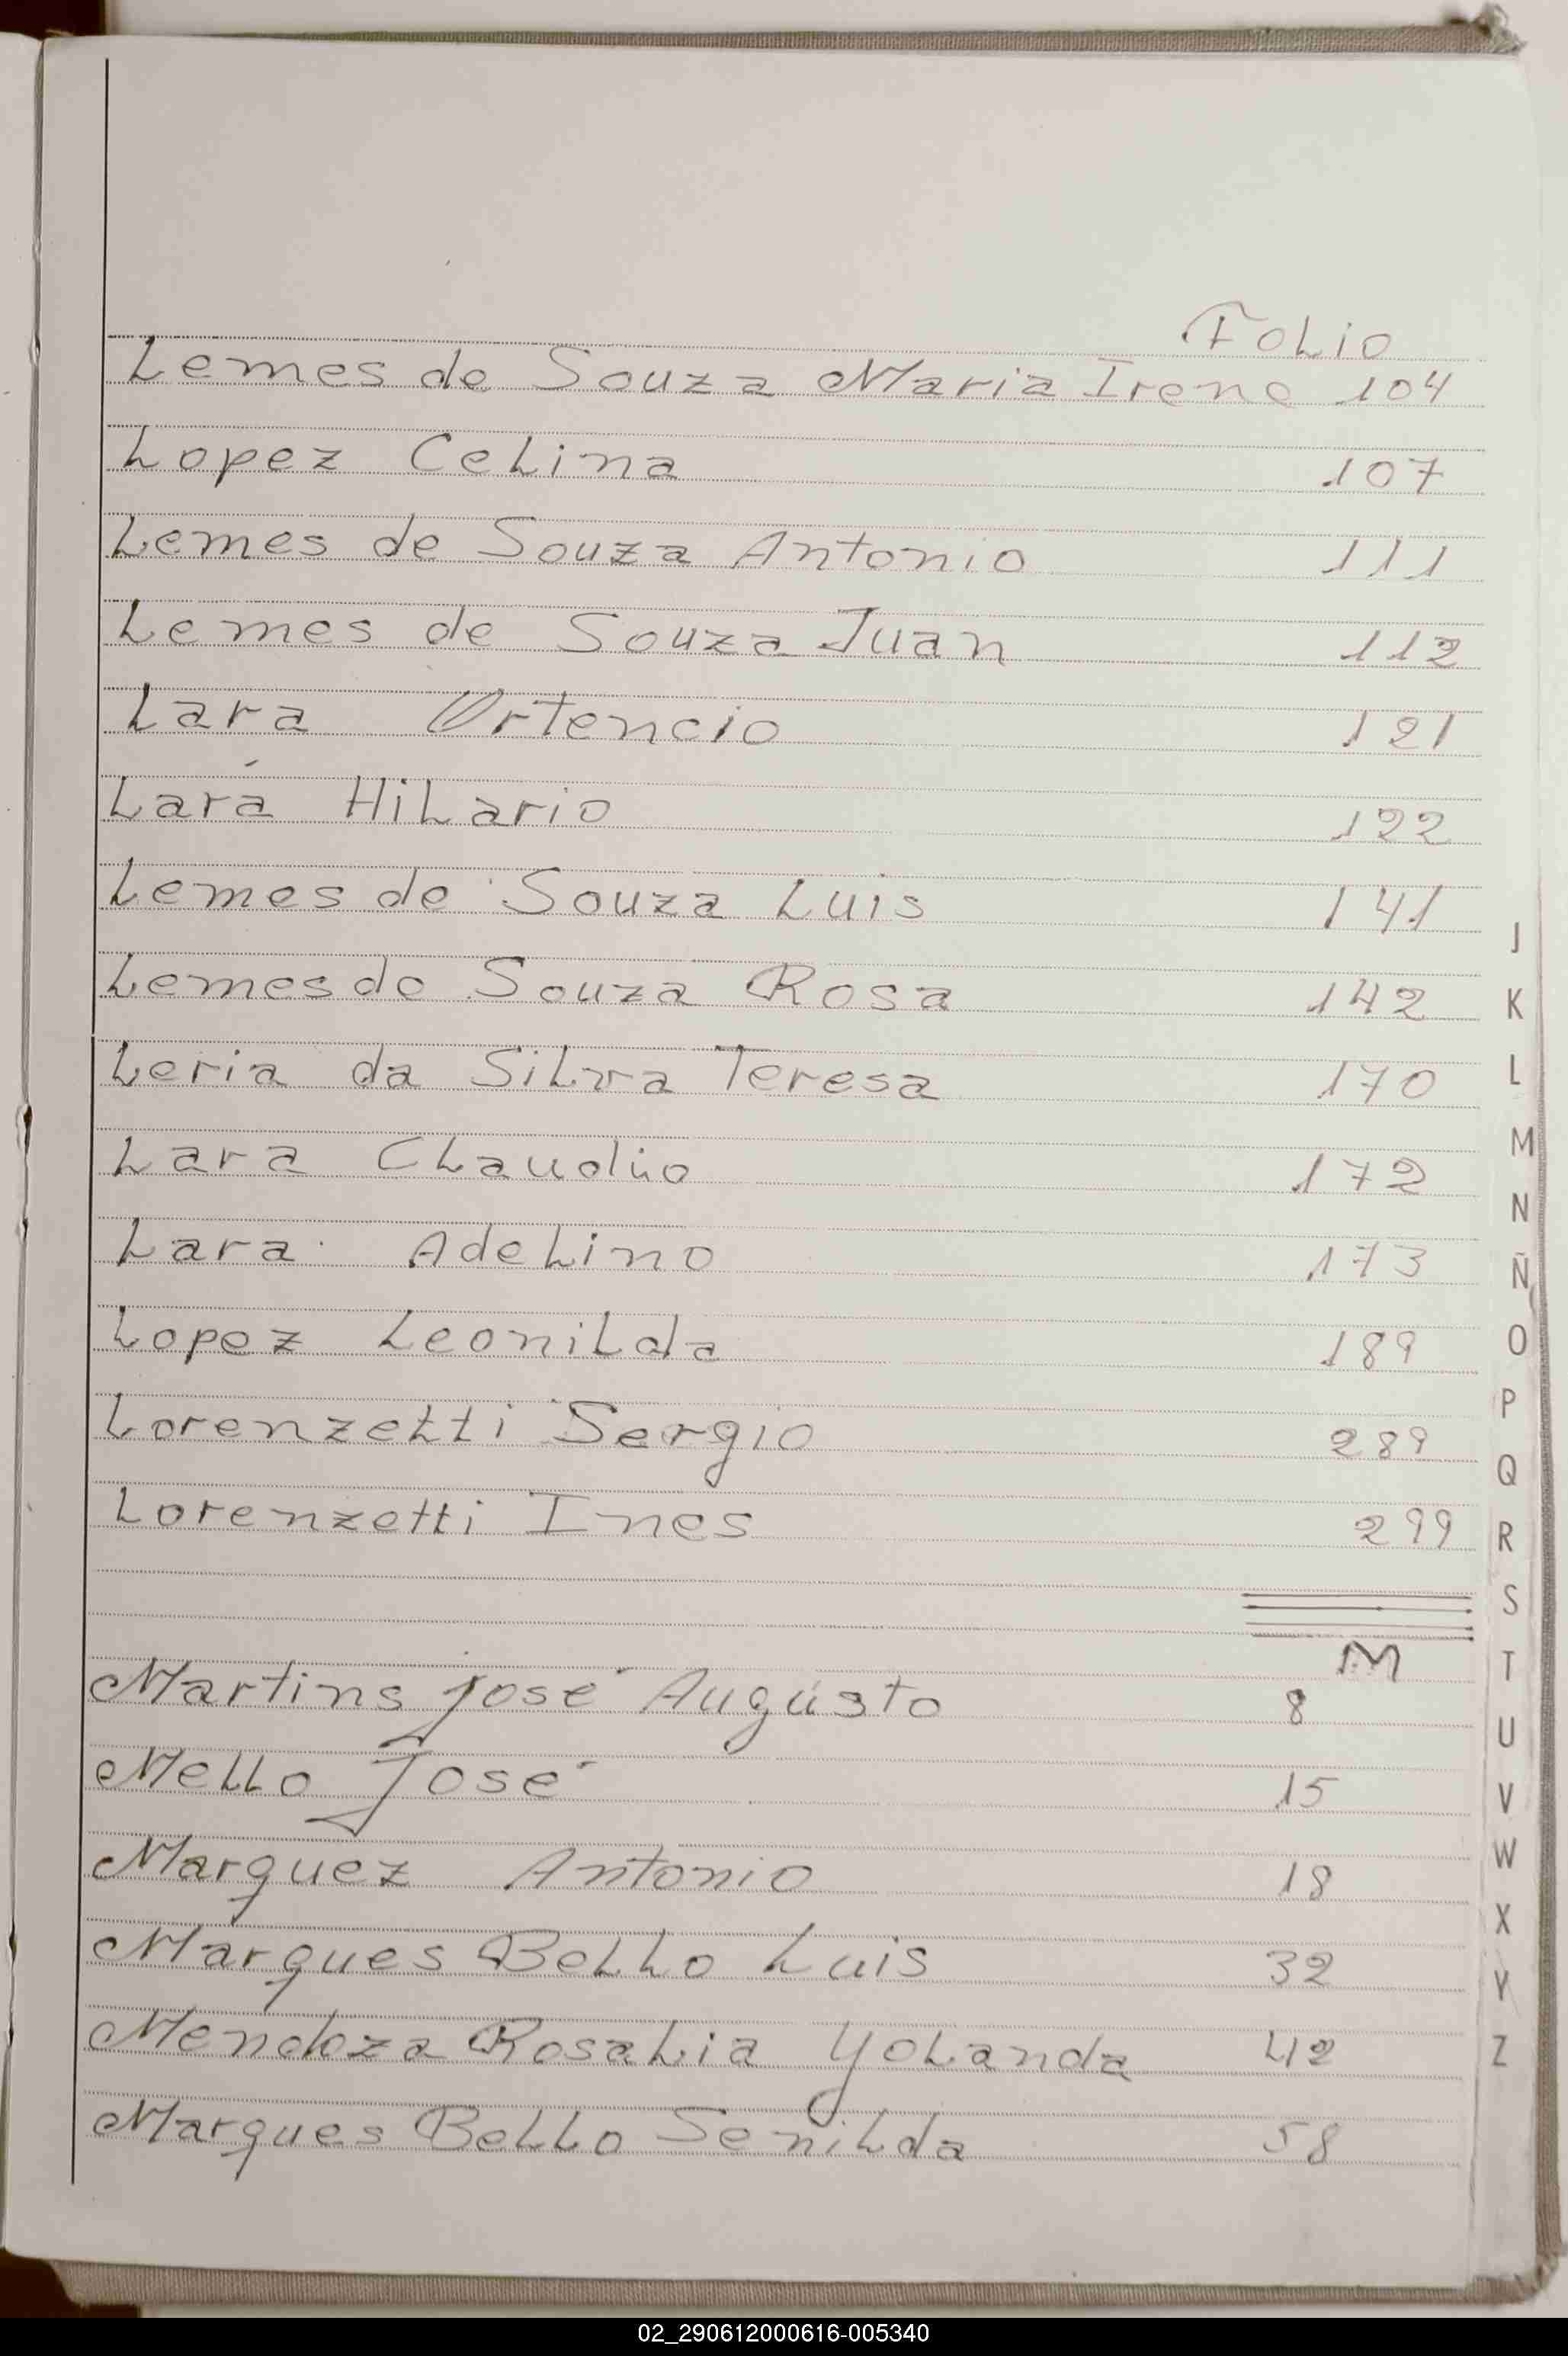 Folio
Lemes de Souza Maria Irene 104
Lopez Celina 107
Lemes de Souza Antonio 111
Lemes de Souza Juan 112
Lara Ortencio 121
Lara Hilario 122
Lemes de Souza Luis 141
Lemes de Souza Rosa 142
Leria da Silva Teresa 170
Lara Claudio 172
Lara Adelino 173
Lopez Leonilda 189
Lorenzetti Sergio 289
Lorenzetti Ines 299
M
Martins José Augusto 8
Mello José 15
Marquez Antonio 18
Marques Bello Luis 32
Mendoza Rosalia Yolanda 42
Marques Bello Senilda 58
J
K
L
M
N
Ñ
O
P
Q
R
S
T
U
V
W
X
Y
Z
02_290612000616-005340